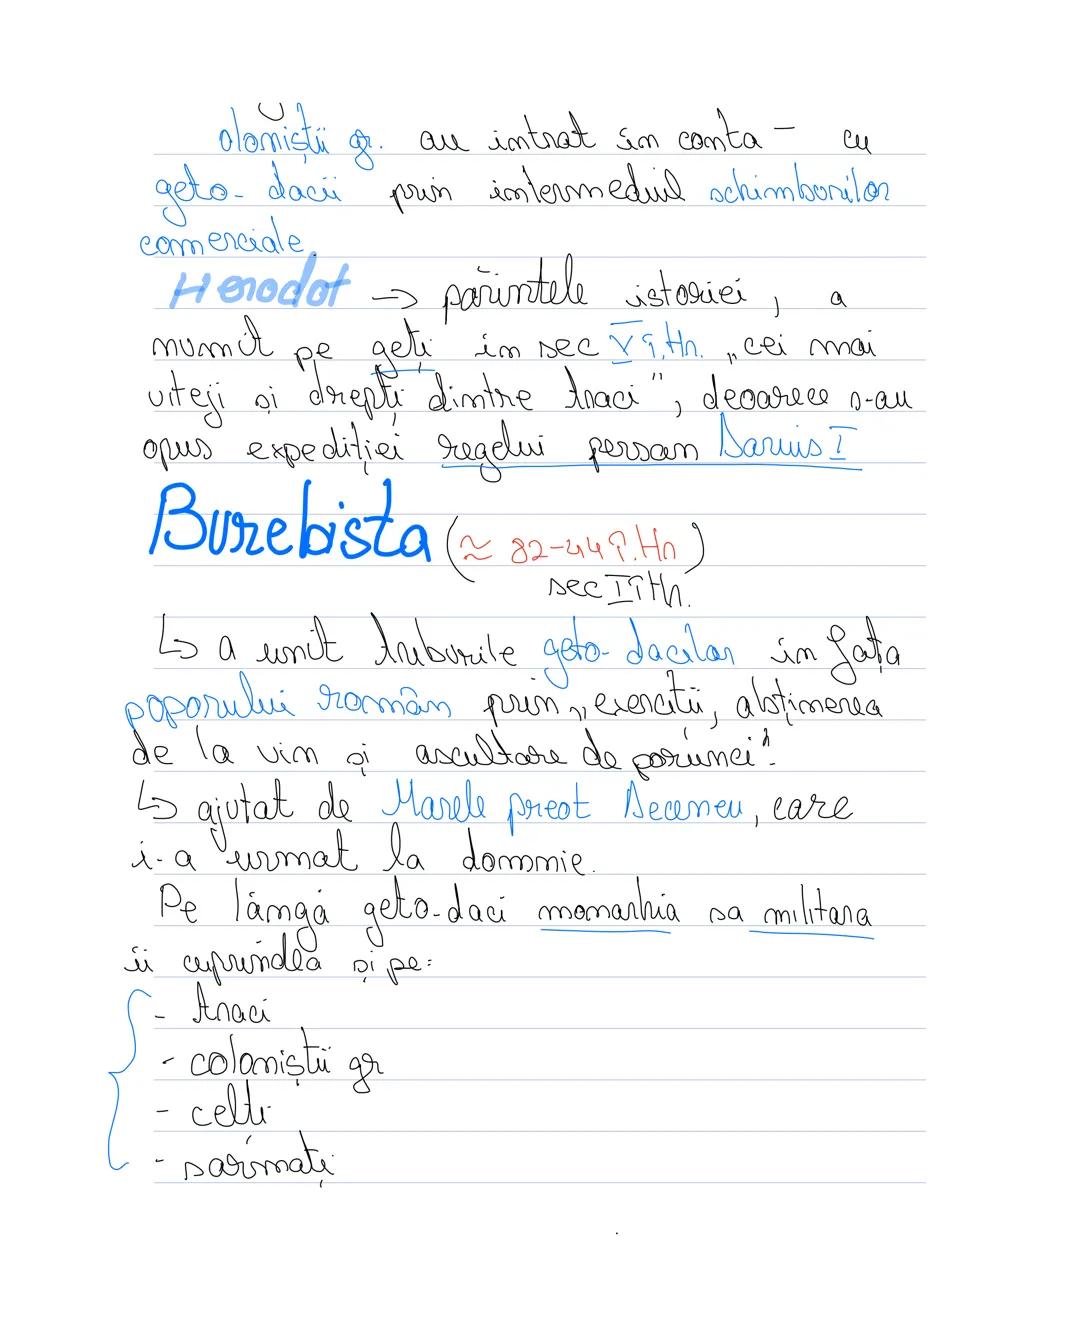 oloniștii gr. au intrat în conta - cu
geto-dacii prin intermediul schimburilor
comerciale.
Herodot -> părintele istoriei, a
numit pe geți în sec V î.Hr. „cei mai
viteji și drepți dintre traci", deoarece s-au
opus expediției regelui persan Darius I
Burebista (≈ 82-44 î.Hr)
sec I î Hr.
↳ a unit triburile geto-dacilor în fața
poporului român prin „exerciții, abținerea
de la vin și ascultare de porunci".
↳ ajutat de Marele preot Deceneu, care
i-a urmat la domnie.
Pe lângă geto-daci monarhia sa militara
îi cuprindea și pe:
- traci
- coloniștii gr
- celți
- sarmați